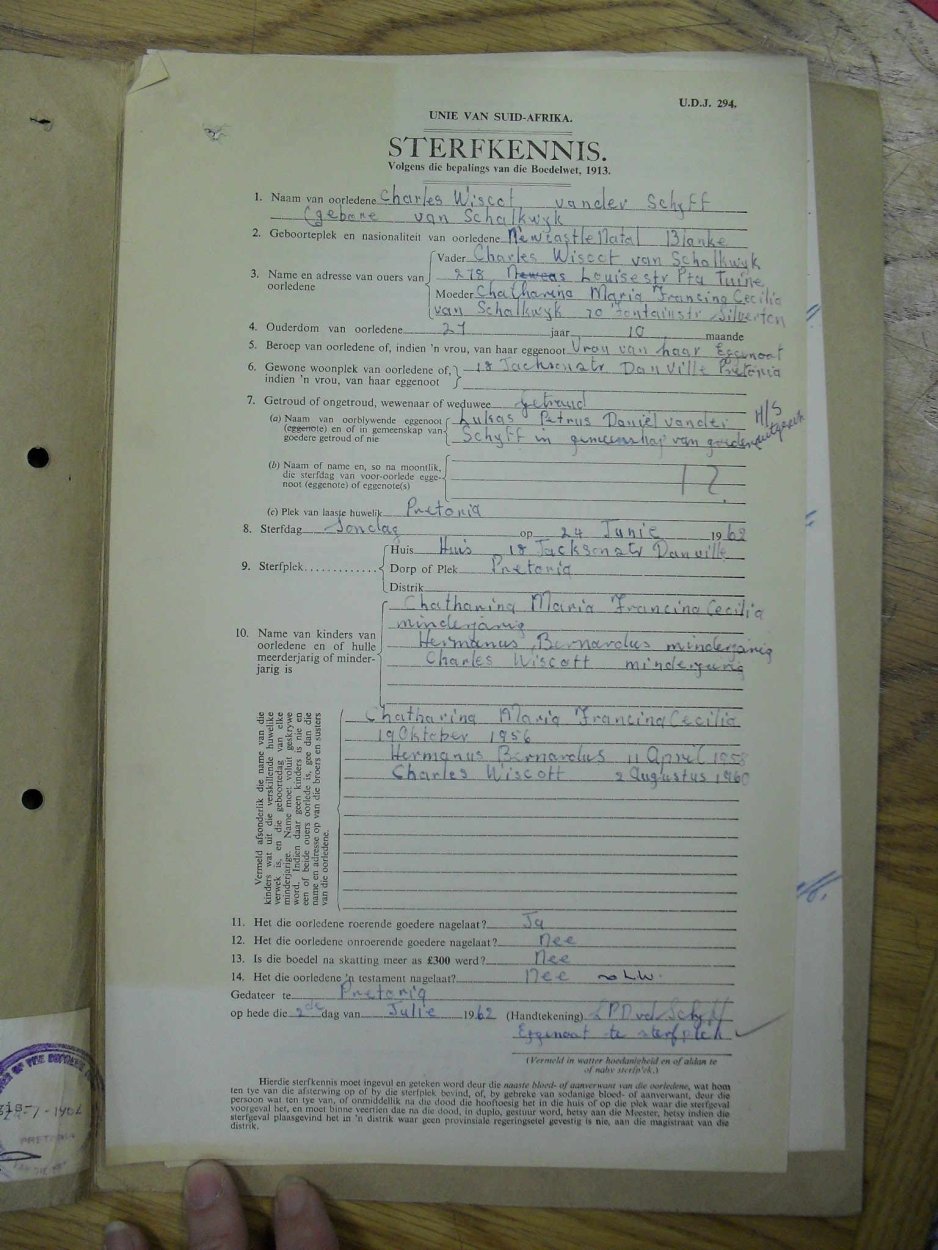 U.D.J. 294.
UNIE VAN SUID-AFRIKA.
STERFKENNIS.
Volgens die bepalings van die Boedelwet, 1913.
1. Naam van oorledene Charles Wiscot van der Schyff
(gebore van Schalkwyk
2. Geboorteplek en nasionaliteit van oorledene Newcastle Natal Blanke
3. Name en adresse van ouers van oorledene
Vader Charles Wiscot van Schalkwyk
278 Louisestr Pta Tuine
Moeder Chatharina Maria Francina Cecilia
van Schalkwyk 70 Fontainstr Silverton
4. Ouderdom van oorledene 27 jaar 10 maande
5. Beroep van oorledene of, indien 'n vrou, van haar eggenoot Vrou van haar Eggenoot
6. Gewone woonplek van oorledene of, 18 Jacksonstr Danville Pretoria
indien 'n vrou, van haar eggenoot
7. Getroud of ongetroud, wewenaar of weduwee getroud
(a) Naam van oorblywende eggenoot Lukas Petrus Daniel van der H/S
(eggenote) en of in gemeenskap van Schyff in gemeenskap van goedere
goedere getroud of nie
(b) Naam of name en, so na moontlik,
die sterfdag van voor-oorlede egge-
noot (eggenote) of eggenote(s)
12
(c) Plek van laaste huwelik Pretoria
8. Sterfdag Sondag op 24 Junie 1962
9. Sterfplek
Huis Huis 18 Jacksonstr Danville
Dorp of Plek Pretoria
Distrik
10. Name van kinders van
oorledene en of hulle
meerderjarig of minder-
jarig is
Chatharina Maria Francina Cecilia
minderjarig
Hermanus Bernardus minderjarig
Charles Wiscott minderjarig
Vermeld afsonderlik die name van die
kinders wat uit die verskillende huwelike
verwek is, en die geboortedag van elke
minderjarige. Name moet voluit geskrywe
word. Indien daar geen kinders is nie en
een of beide ouers oorlede is, gee dan die
name en adresse op van die broers en susters
van die oorledene.
Chatharina Maria Francina Cecilia
19 Oktober 1956
Hermanus Bernardus 11 April 1958
Charles Wiscott 2 Augustus 1960
11. Het die oorledene roerende goedere nagelaat? Ja
12. Het die oorledene onroerende goedere nagelaat? Nee
13. Is die boedel na skatting meer as £300 werd? Nee
14. Het die oorledene 'n testament nagelaat? Nee
Gedateer te Pretoria
op hede die 2de dag van Julie 1962 (Handtekening) LPD vd Schyff
Eggenoot te sterfplek
(Vermeld in watter hoedanigheid en of aldan te
of naby sterfplek.)
Hierdie sterfkennis moet ingevul en geteken word deur die naaste bloed- of aanverwant van die oorledene, wat hom
ten tye van die afsterwing op of by die sterfplek bevind, of, by gebreke van sodanige bloed- of aanverwant, deur die
persoon wat ten tye van, of onmiddellik na die dood die hooftoesig het in die huis of op die plek waar die sterfgeval
voorgeval het, en moet binne veertien dae na die dood, in duplo, gestuur word, hetsy aan die Meester, hetsy indien die
sterfgeval plaasgevind het in 'n distrik waar geen provinsiale regeringsetel gevestig is nie, aan die magistraat van die
distrik.
PRETORIA